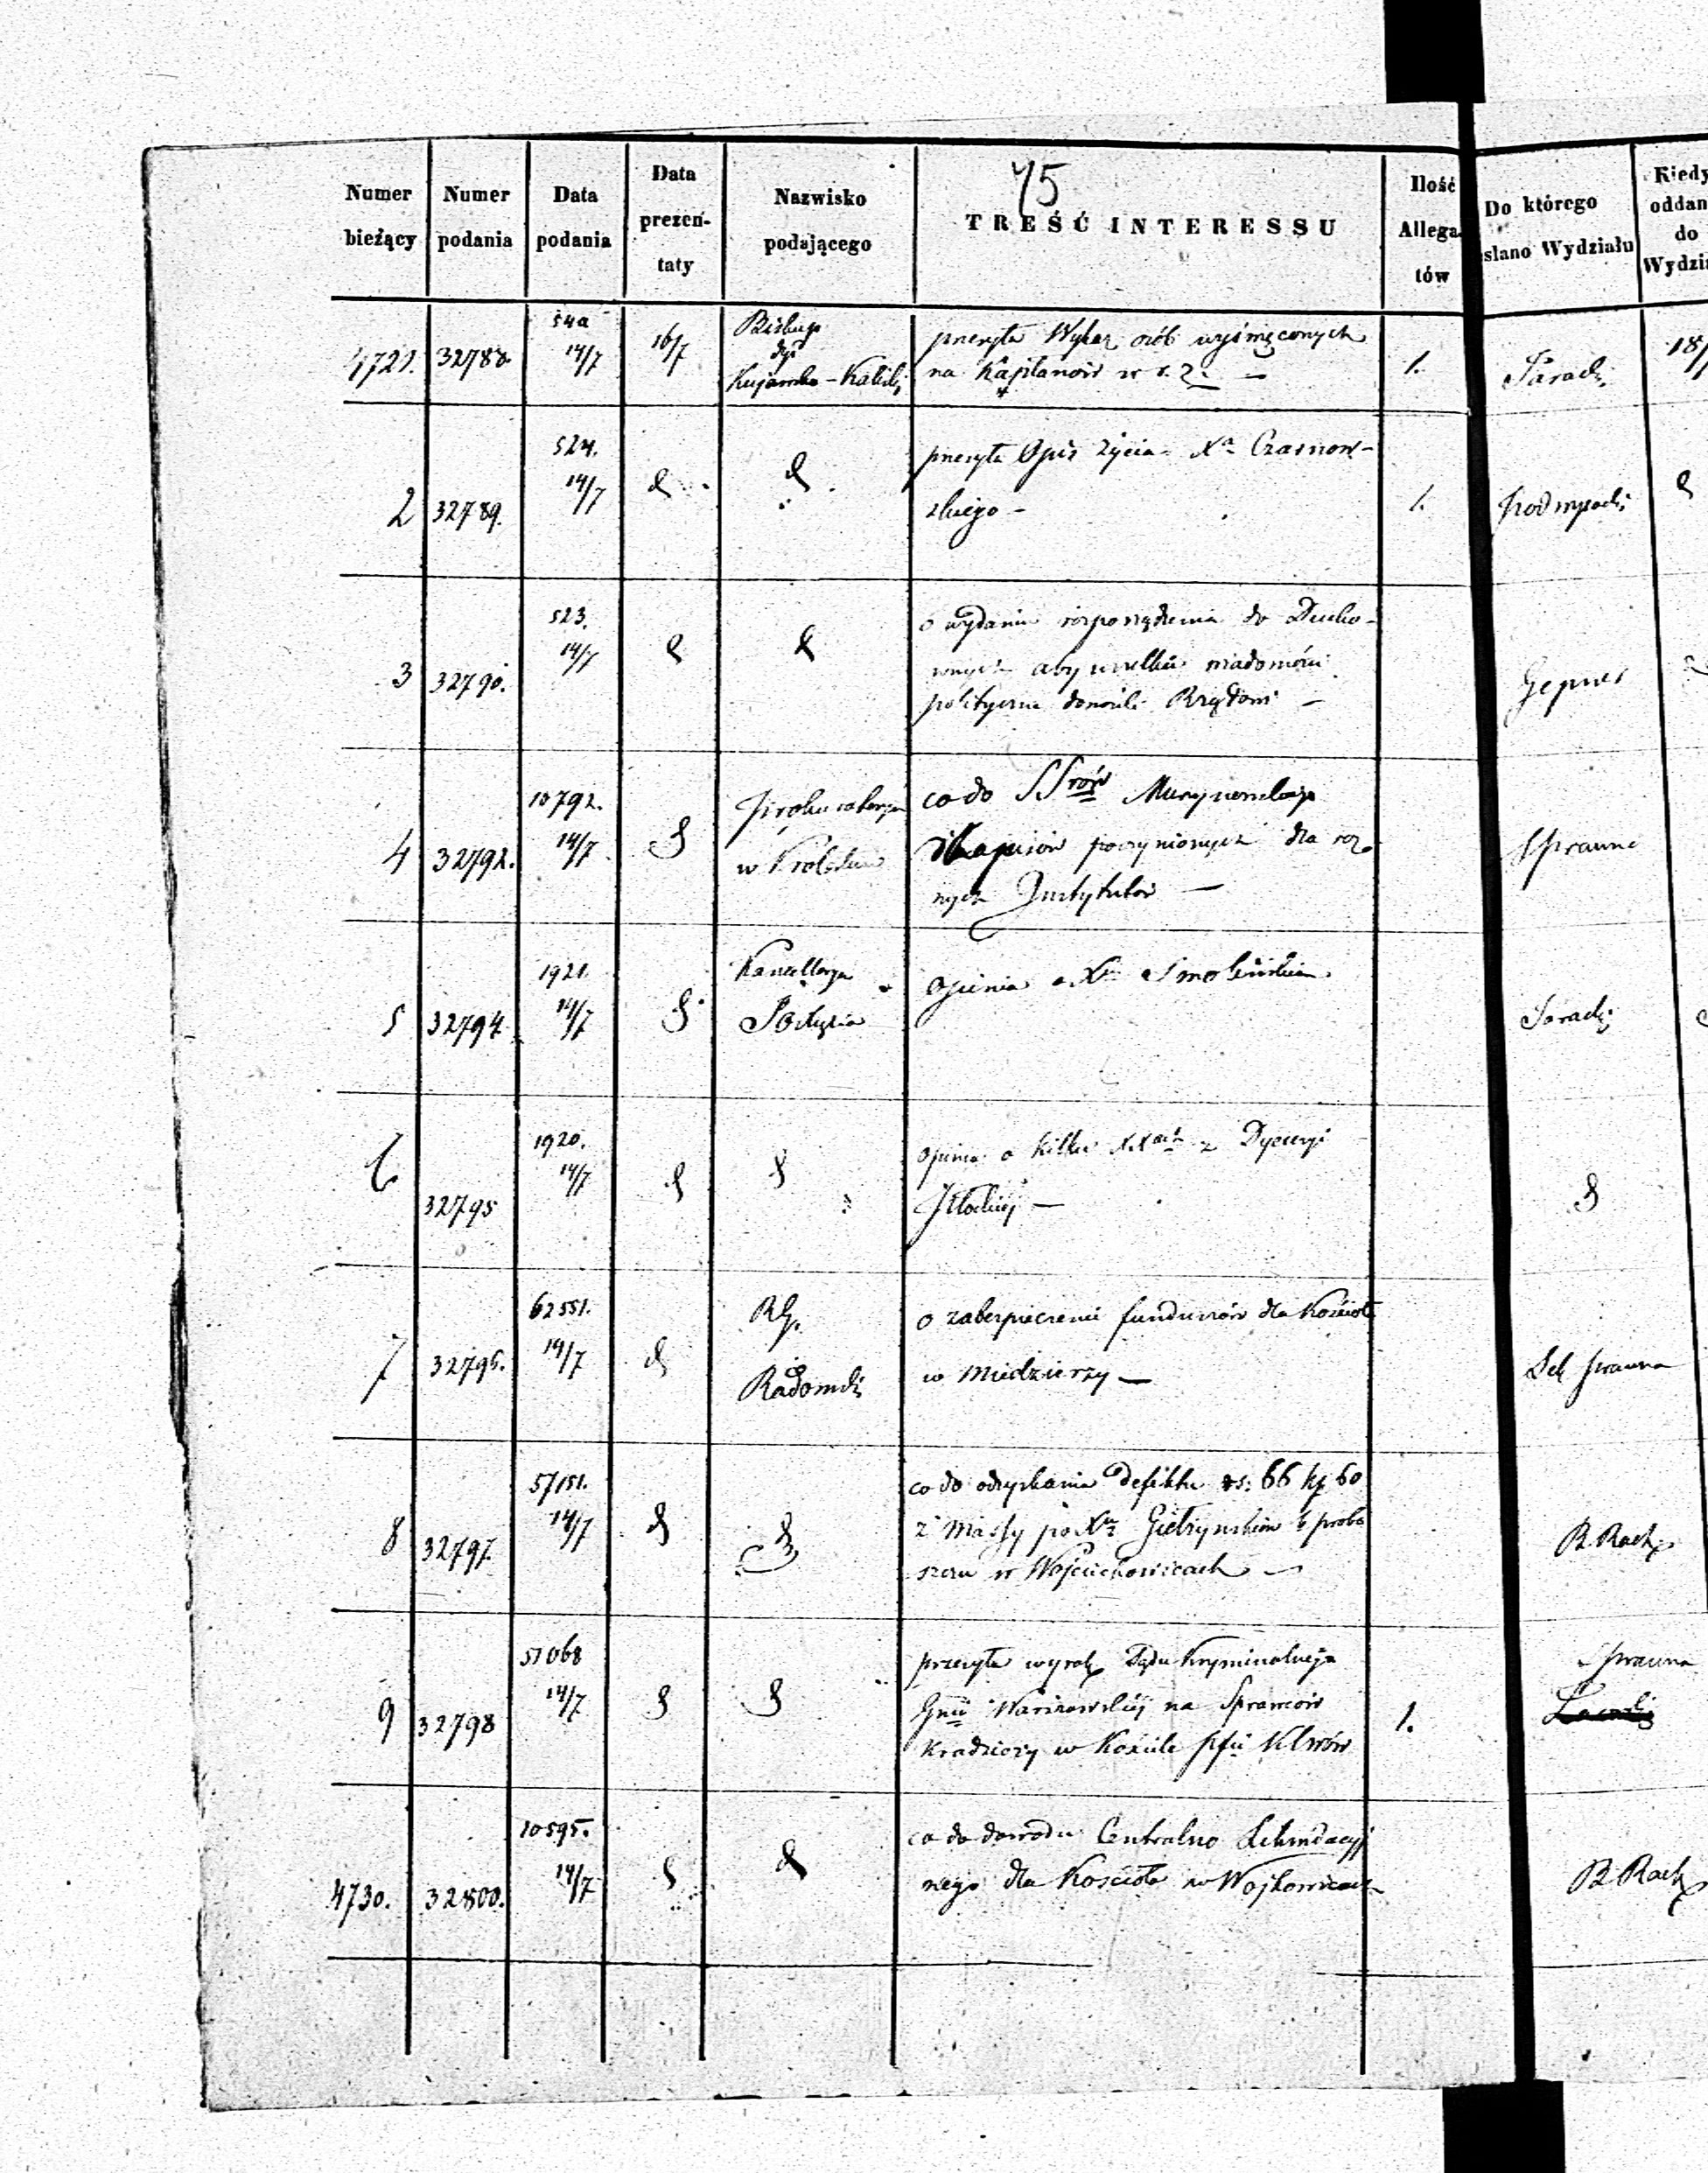 75
Numer bieżący
Numer podania
Data podania
Data prezen- taty
Nazwisko podającego
TREŚĆ INTERESSU
Ilość Allega tów
Do którego słano Wydziału
Kiedy oddan do Wydzia
4721. 32788
14/7
16/7
Biskup
dyi
Kujawsko - Kalisk
przesyła Wykaz osób wyświęconych
na Kapłanów w r. z. —
1.
18/
2 32789.
524.
14/7
przesyła Opis życia Xa Czarnow-
skiego -
1.
3 32790.
523.
14/7
o wydanie rozporządzenia do Ducho-
wnych aby wszelkie wiadomości
polityczne donosili Rządowi —
4 32792.
10792.
14/7
w
co do SSrów
poczynionych dla roż
nych Instytutów —
Sprawne
5 32794
1921.
14/7
Kancellarya
Opinia o Xu Smolińskim
6 32795
1920.
14/7
Opinia o kilku XXach z Dyecezyi
Płockiej —
7
62551.
14/7
RG.
Radomski
o zabezpieczenie funduszów dla Kościoła
w Miedzierzy —
Sek prawna
8 32797.
57151.
14/7
co do odzyskania Defektu rs: 66 kp 60
z Massy po Xu probo
szczu w Wojciechowicach —
R. Rach
9 32798
57068
14/7
przesyła wyrok Sądu Kryminalnego
Gnii Warszawskiej na Sprawców
Kradzieży w Kościele pfii Klwów
1.
prawna
4730. 32800.
10595.
14/7
co do dowodu Centralno Likwidacyj
nego dla Kościoła w Wojkowicach
R Rach